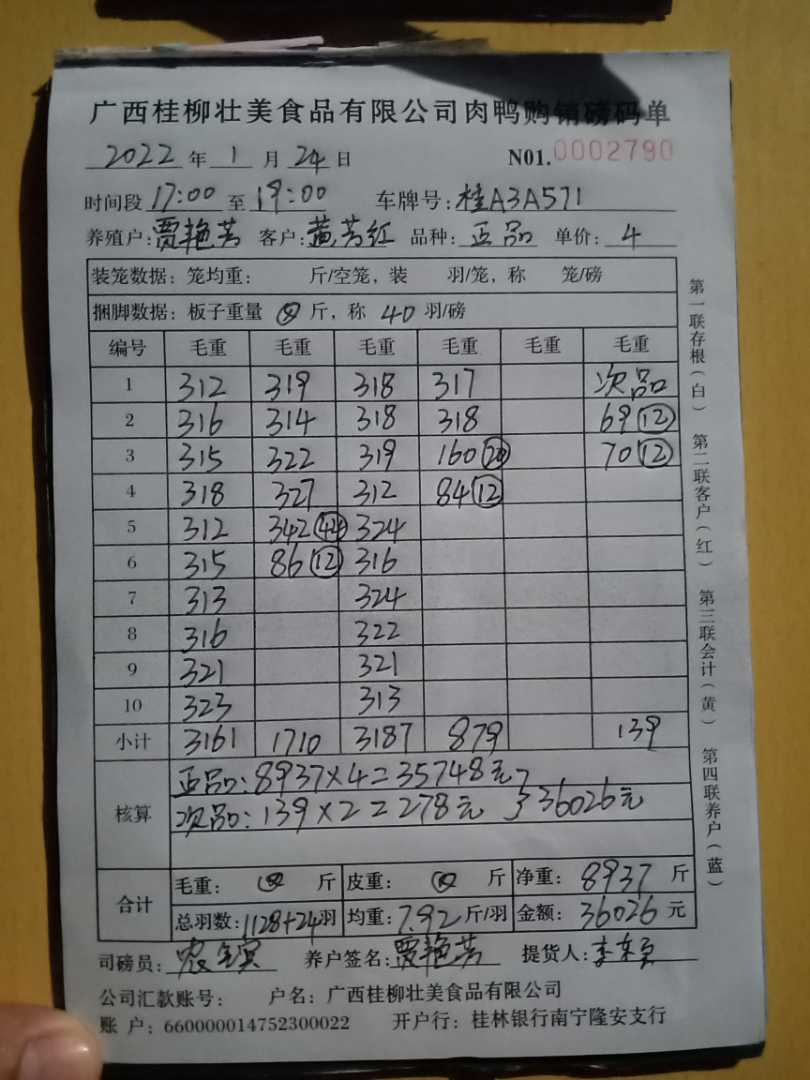 广西桂柳壮美食品有限公司肉鸭购销磅码单
2022 年 1 月 24 日 N01.0002790
时间段 17:00 至 19:00 车牌号: 桂A3A571
养殖户: 贾艳芳 客户: 黄芳红 品种: 正品 单价: 4
装笼数据: 笼均重: 斤/空笼, 装 羽/笼, 称 笼/磅
捆脚数据: 板子重量 斤, 称 40 羽/磅
编号 毛重 毛重 毛重 毛重 毛重 毛重
1 312 319 318 317 次品
2 316 314 318 318 69 12
3 315 322 319 160 20 70 12
4 318 327 312 84 12
5 312 342 44 324
6 315 86 12 316
7 313 324
8 316 322
9 321 321
10 323 313
小计 3161 1710 3187 879 139
核算 正品: 8937×4=35748元
次品: 139×2=278元 36026元
合计 毛重: 斤 皮重: 斤 净重: 8937 斤
总羽数: 1128+24 羽 均重: 7.92 斤/羽 金额: 36026 元
司磅员: 养户签名: 贾艳芳 提货人:
公司汇款账号: 户名: 广西桂柳壮美食品有限公司
账 户: 660000014752300022 开户行: 桂林银行南宁隆安支行
第一联存根(白) 第二联客户(红) 第三联会计(黄) 第四联养户(蓝)